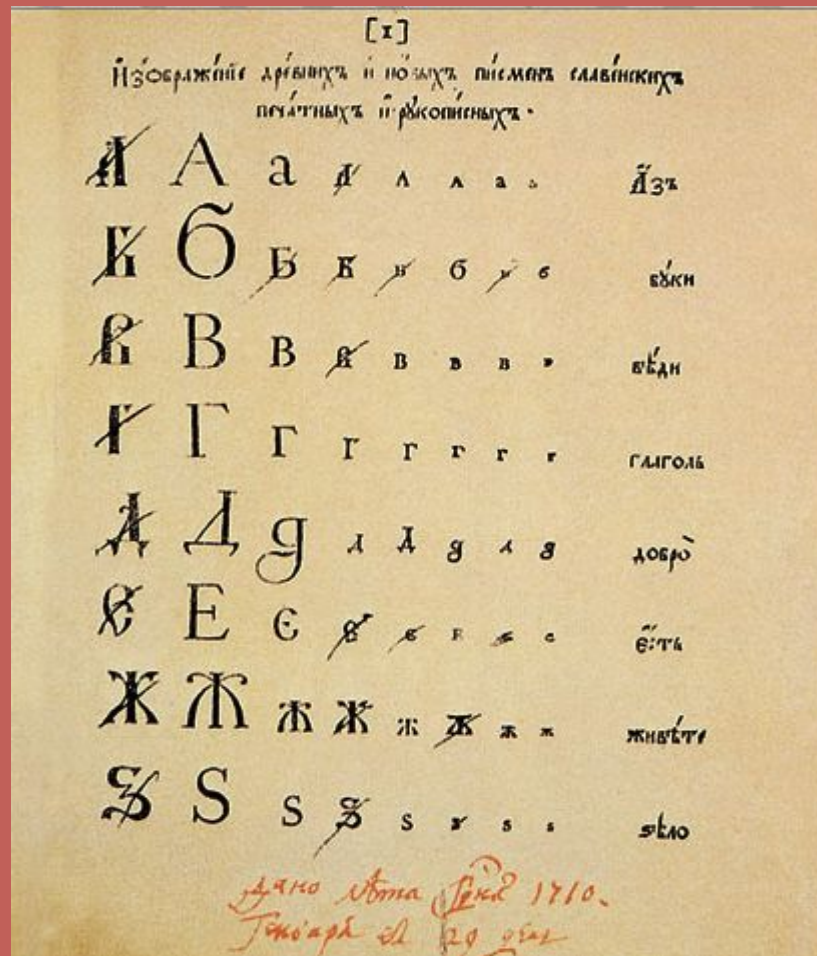 [1]
И҆зображе́нїе дре́внихъ и҆ но́выхъ пи́сменъ славе́нскихъ
печа́тныхъ и҆ рꙋкопи́сныхъ.
А А а А А А а а А҆́зъ
Б Б Б Б в б в б бꙋ́ки
В В в В в в в в вѣ́ди
Г Г г г г г г г глаголь
Д Д д д д д д д добро̀
Є Е є є є Е є є є҆́сть
Ж Ж ж Ж ж ж ж ж живѣ́те
Ѕ Ѕ ѕ Ѕ ѕ ѕ ѕ ѕ ѕѣло̀
Дано лѣта 1710.
Генваря 29 день